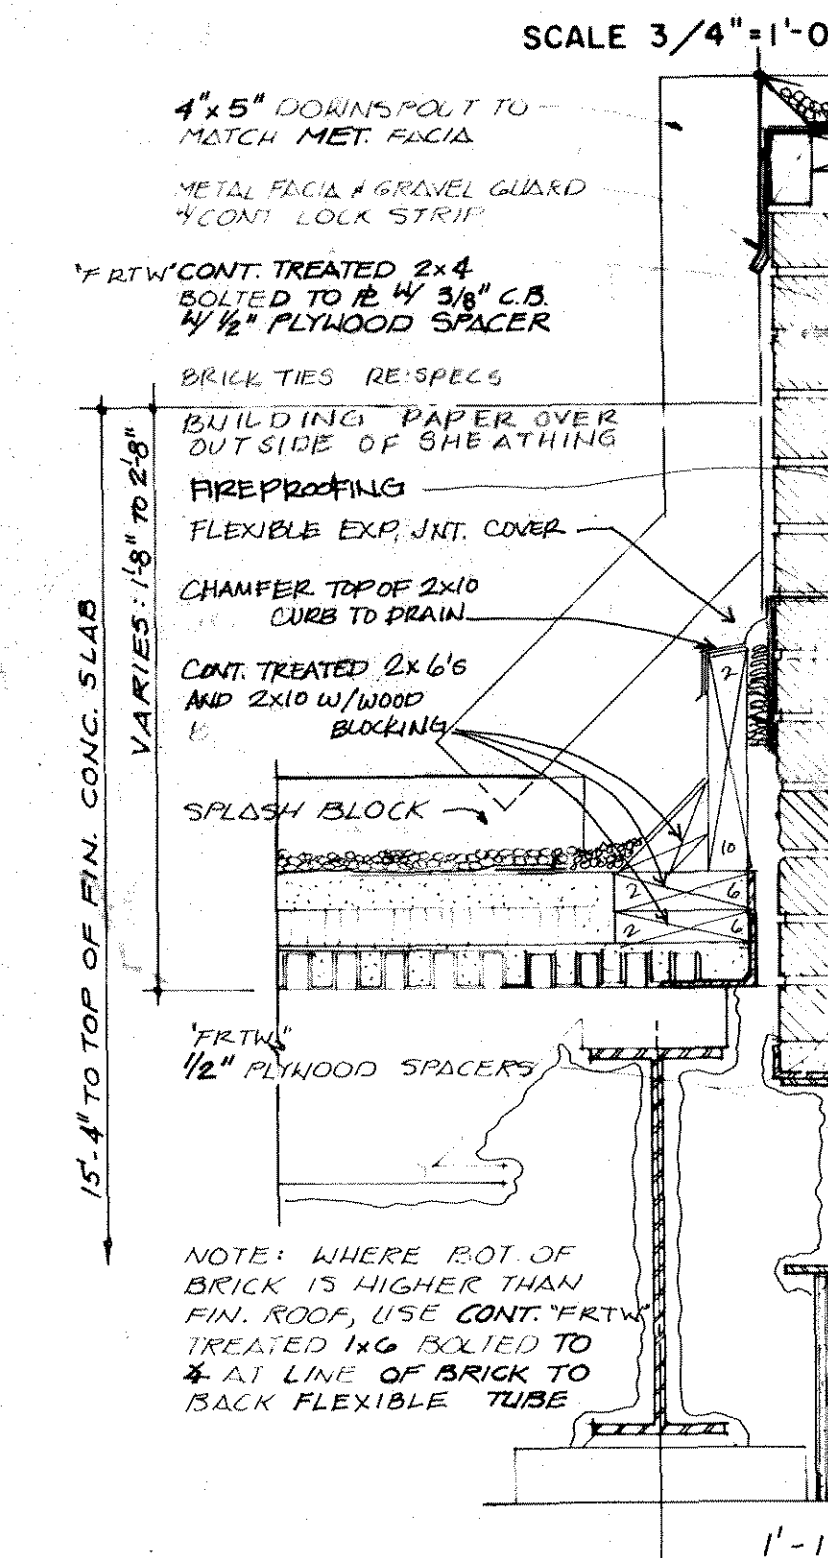 SCALE 3/4"=1'-0
4"x5" DOWNSPOUT TO
MATCH MET. FACIA
METAL FACIA & GRAVEL GUARD
W/CONT LOCK STRIP
"FRTW" CONT. TREATED 2x4
BOLTED TO PL W/ 3/8" C.B.
W/ 1/2" PLYWOOD SPACER
BRICK TIES RE: SPECS
BUILDING PAPER OVER
OUTSIDE OF SHEATHING
FIREPROOFING
FLEXIBLE EXP. JNT. COVER
CHAMFER TOP OF 2x10
CURB TO DRAIN
CONT. TREATED 2x6'S
AND 2x10 W/WOOD
BLOCKING
SPLASH BLOCK
2
10
2 6
2 6
VARIES: 1'-8" TO 2'-8"
15'-4" TO TOP OF FIN. CONC. SLAB
"FRTW"
1/2" PLYWOOD SPACERS
NOTE: WHERE BOT. OF
BRICK IS HIGHER THAN
FIN. ROOF, USE CONT. "FRTW"
TREATED 1x6 BOLTED TO
AT LINE OF BRICK TO
BACK FLEXIBLE TUBE
1'-1